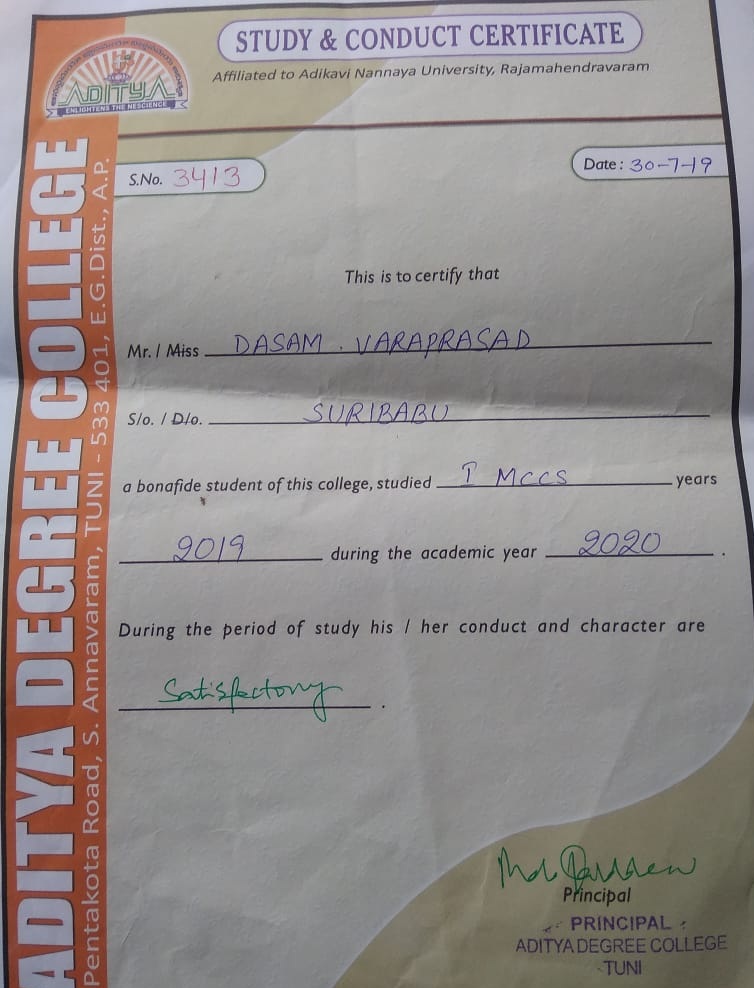 STUDY & CONDUCT CERTIFICATE
Affiliated to Adikavi Nannaya University, Rajamahendravaram
ADITYA
ENLIGHTENS THE NESCIENCE
ADITYA DEGREE COLLEGE
Pentakota Road, S. Annavaram, TUNI - 533 401, E.G.Dist., A.P.
S.No. 3413
Date : 30-7-19
This is to certify that
Mr. / Miss DASAM . VARAPRASAD
S/o. / D/o. SURIBABU
a bonafide student of this college, studied I MCCS years
2019 during the academic year 2020 .
During the period of study his / her conduct and character are
Satisfectory .
Principal
PRINCIPAL
ADITYA DEGREE COLLEGE
TUNI